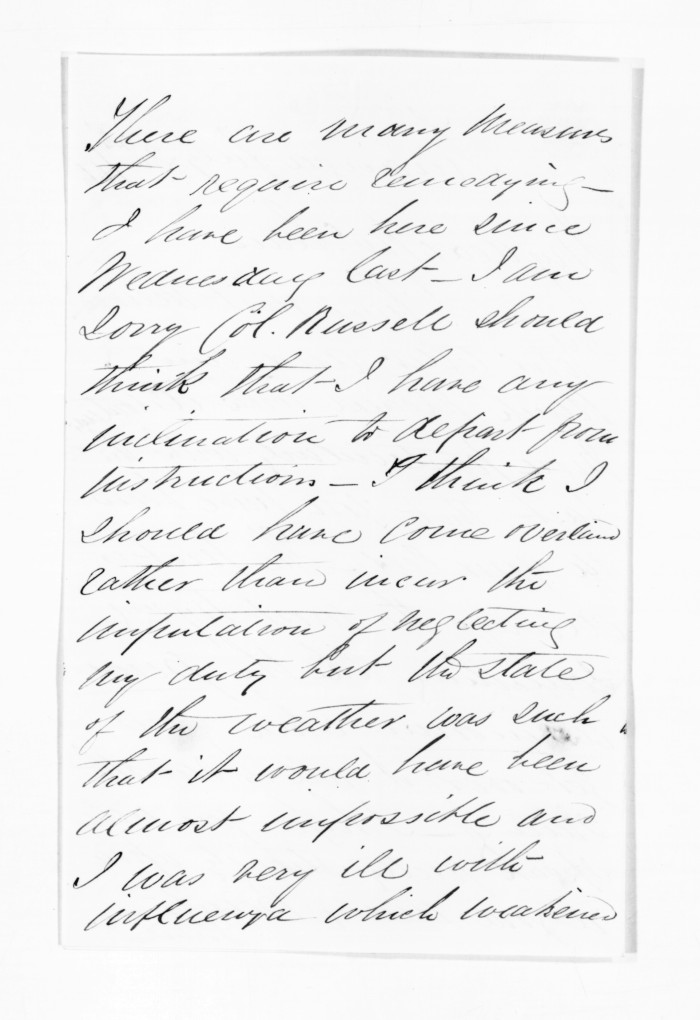 There are many measures
that require remedying –
I have been here since
Wednesday last – I am
sorry Col. Russell should
think that I have any
inclination to depart from
instructions – I think I
should have come overland
rather than incur the
imputation of neglecting
my duty but the state
of the weather was such
that it would have been
almost impossible and
I was very ill with
influenza which weakened